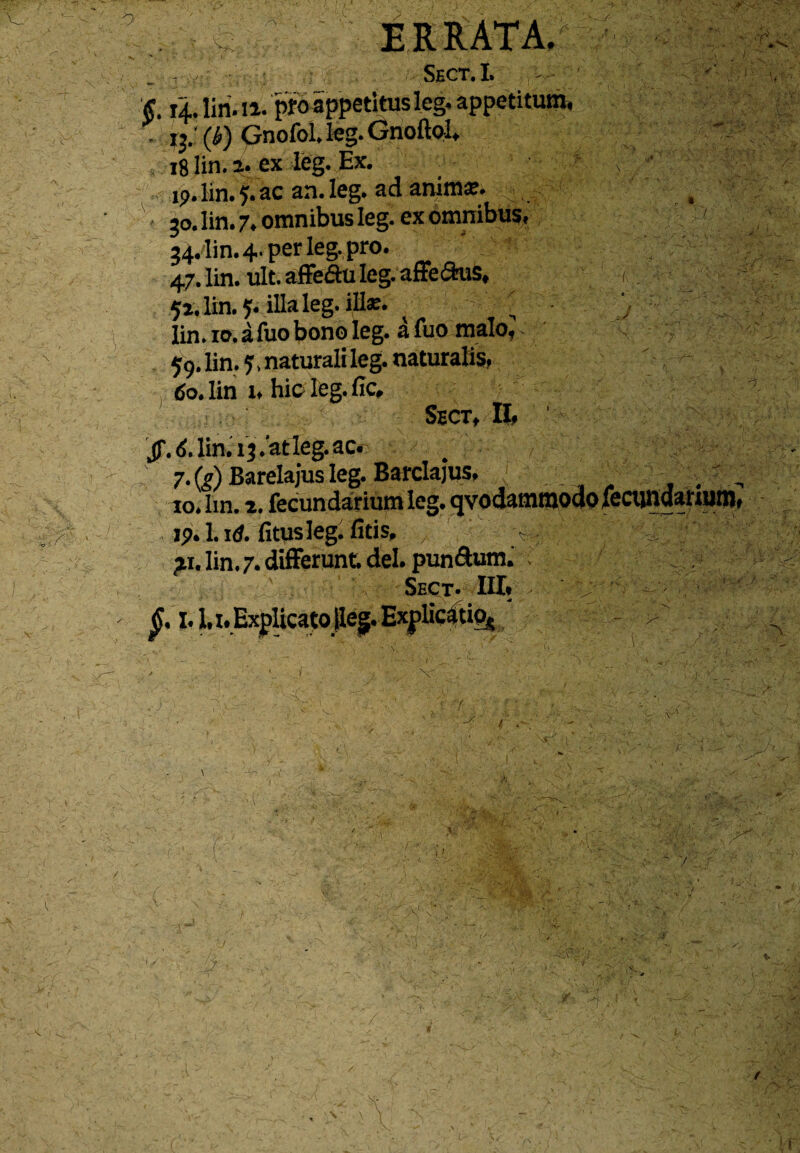 ERRATA.
SECT. I.
§. 14. lin. 12. pro appetitus leg. appetitum,
13. (b) Gnoſol. leg. Gnoſtol.
18 lin. 2. ex leg. Ex.
19. lin. 5. ac an. leg. ad animæ.
30. lin. 7. omnibus leg. ex omnibus,
34. lin. 4. per leg. pro.
47. lin. ult. affectu leg. affectus,
52, lin. 5. illa leg. illæ.
lin. 10. à ſuo bono leg. à ſuo malo,
59. lin. 5. naturali leg. naturalis,
60. lin 1. hic leg. ſic,
SECT, II,
§. 6. lin. 13. at leg. ac.
7. (g) Barelajus leg. Barclajus.
10. lin. 2. ſecundarium leg. qvodammodo ſecundarium,
19. l. 16. ſitus leg. ſitis,
21. lin. 7. differunt. del. punctum.
SECT. III,
§. 1. l. 1. Explicato leg. Explicatio,